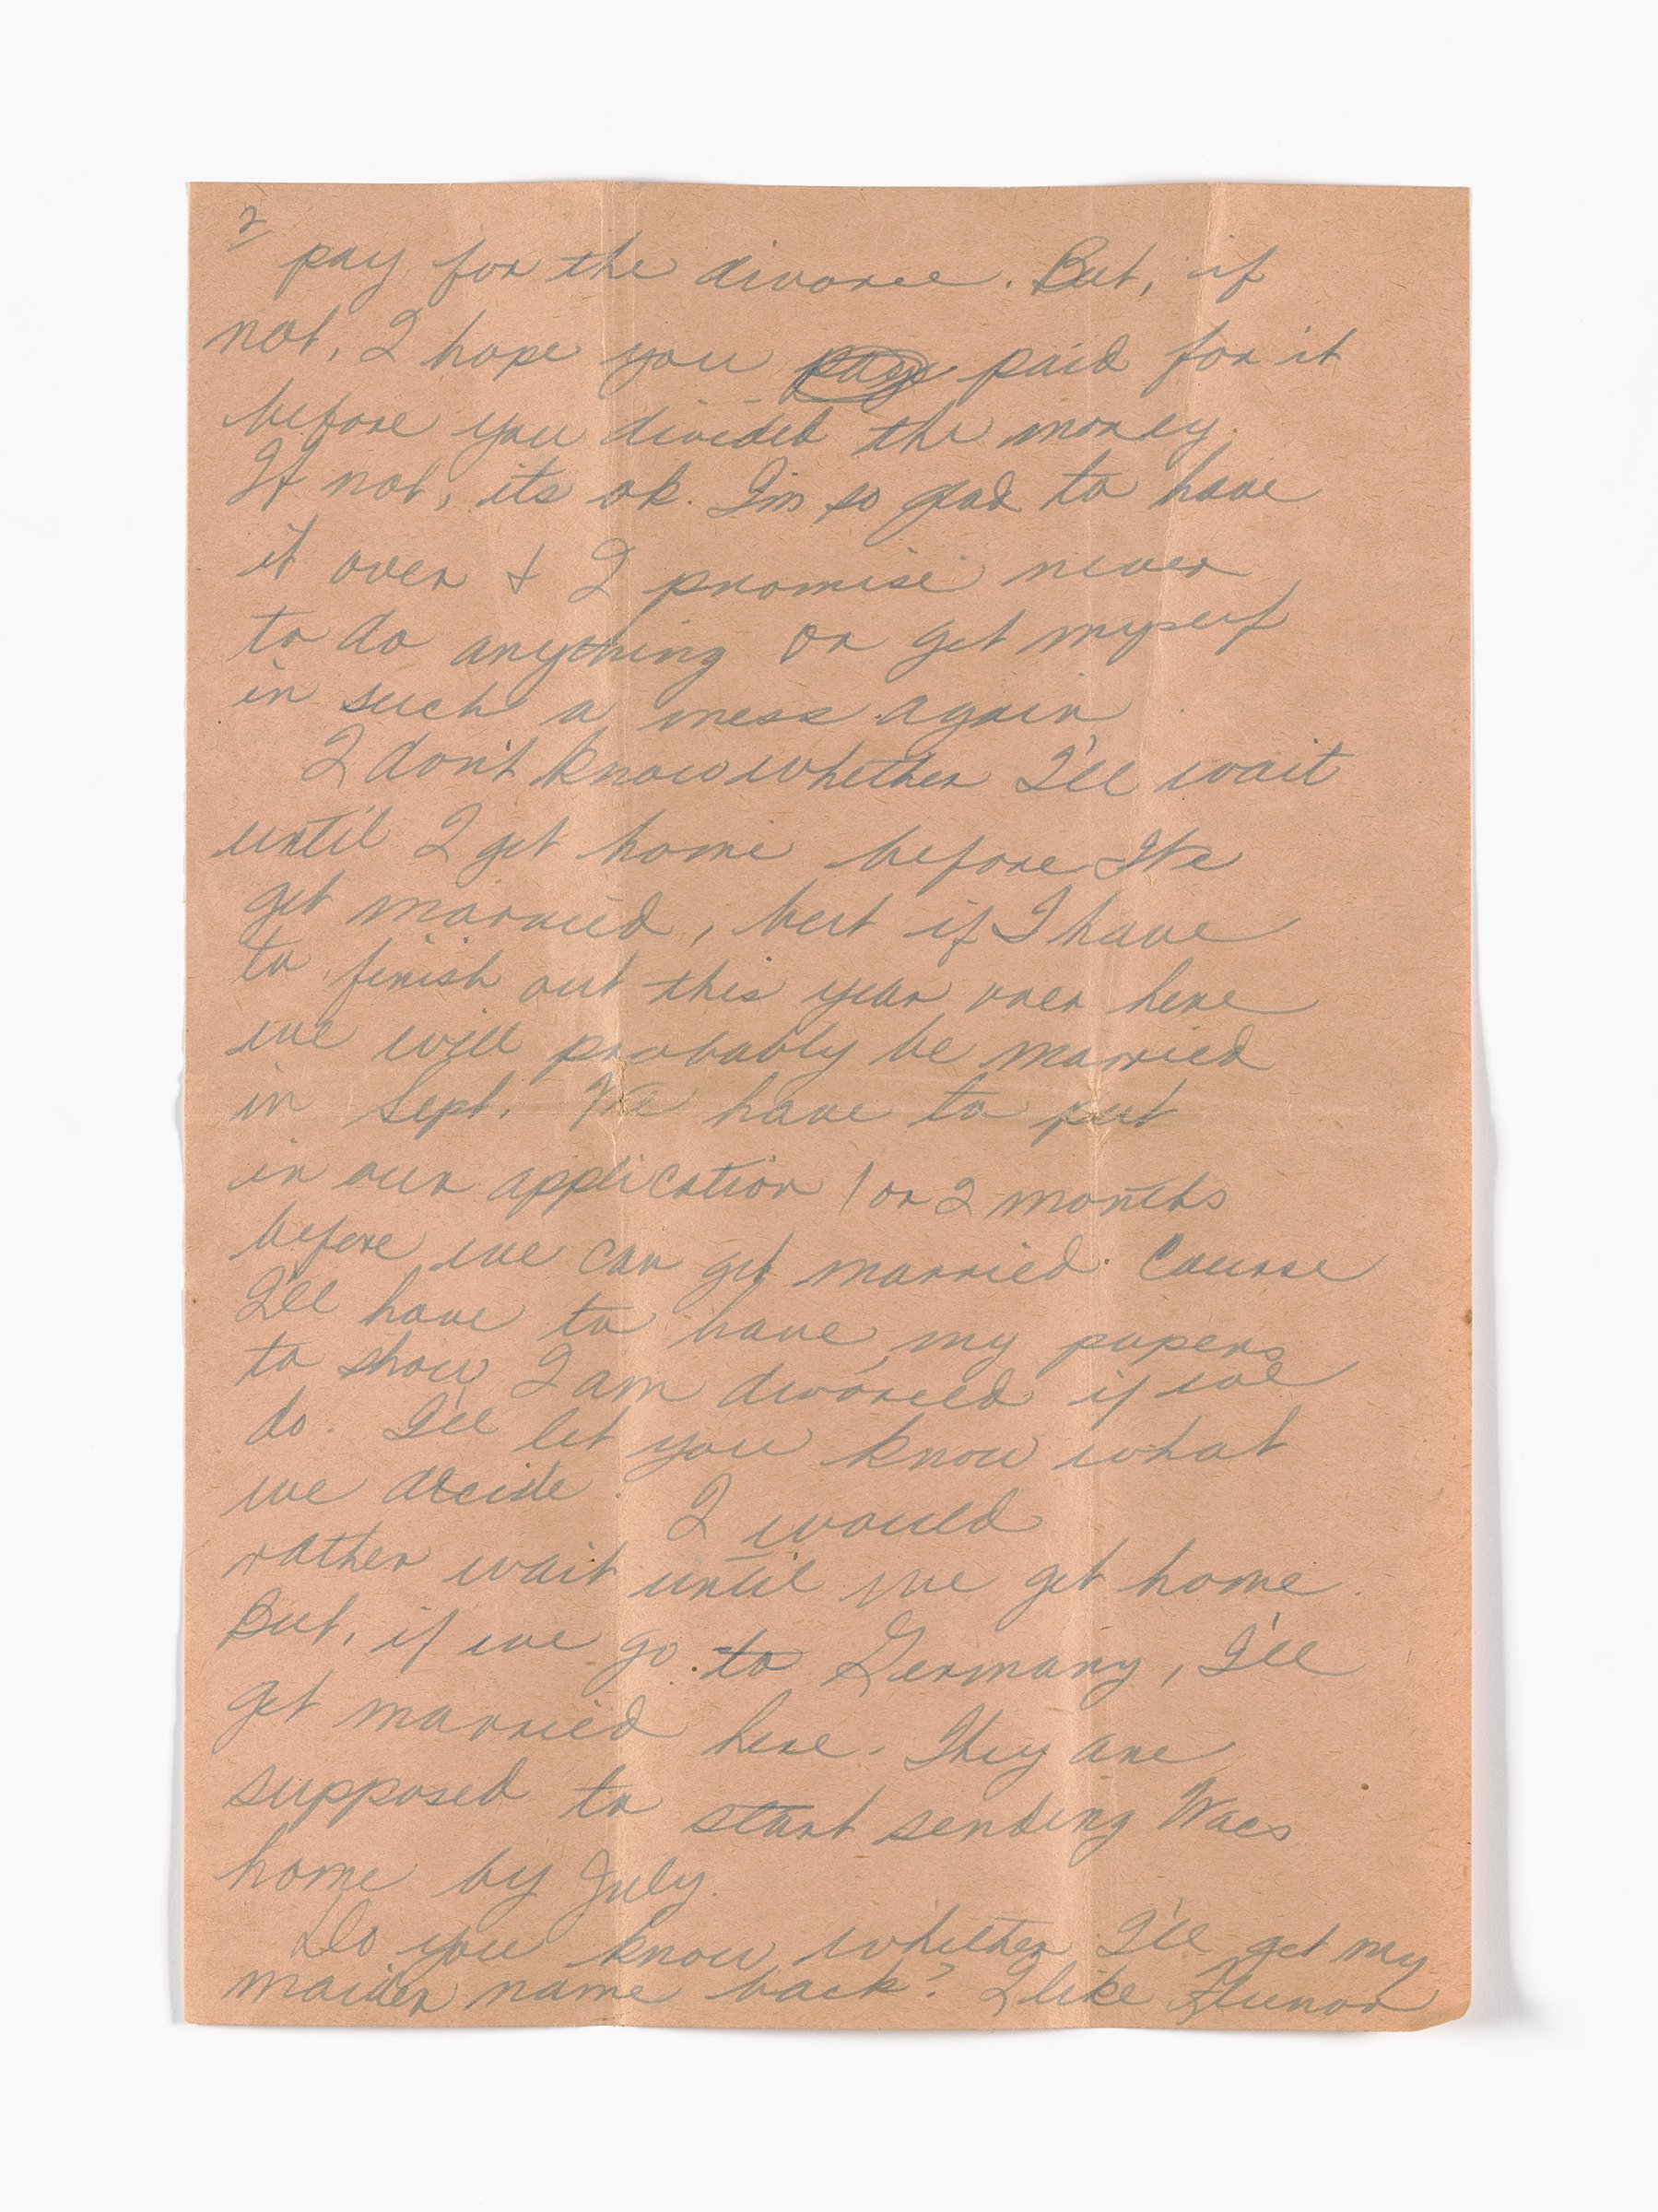 2
pay for the divorce. But, if
not, I hope you pay paid for it
before you divided the money.
If not, its ok. I'm so glad to have
it over & I promise never
to do anything or get myself
in such a mess again
I don't know whether I'll wait
until I get home before We
get married, but if I have
to finish out this year over here
we will probably be married
in Sept. We have to put
in our application 1 or 2 months
before we can get married. Course
I'll have to have my papers
to show I am divorced if we
do. I'll let you know what
we decide. I would
rather wait until we get home.
But, if we go to Germany, I'll
get married here. They are
supposed to start sending Wacs
home by July.
Do you know whether I'll get my
maiden name back? I like